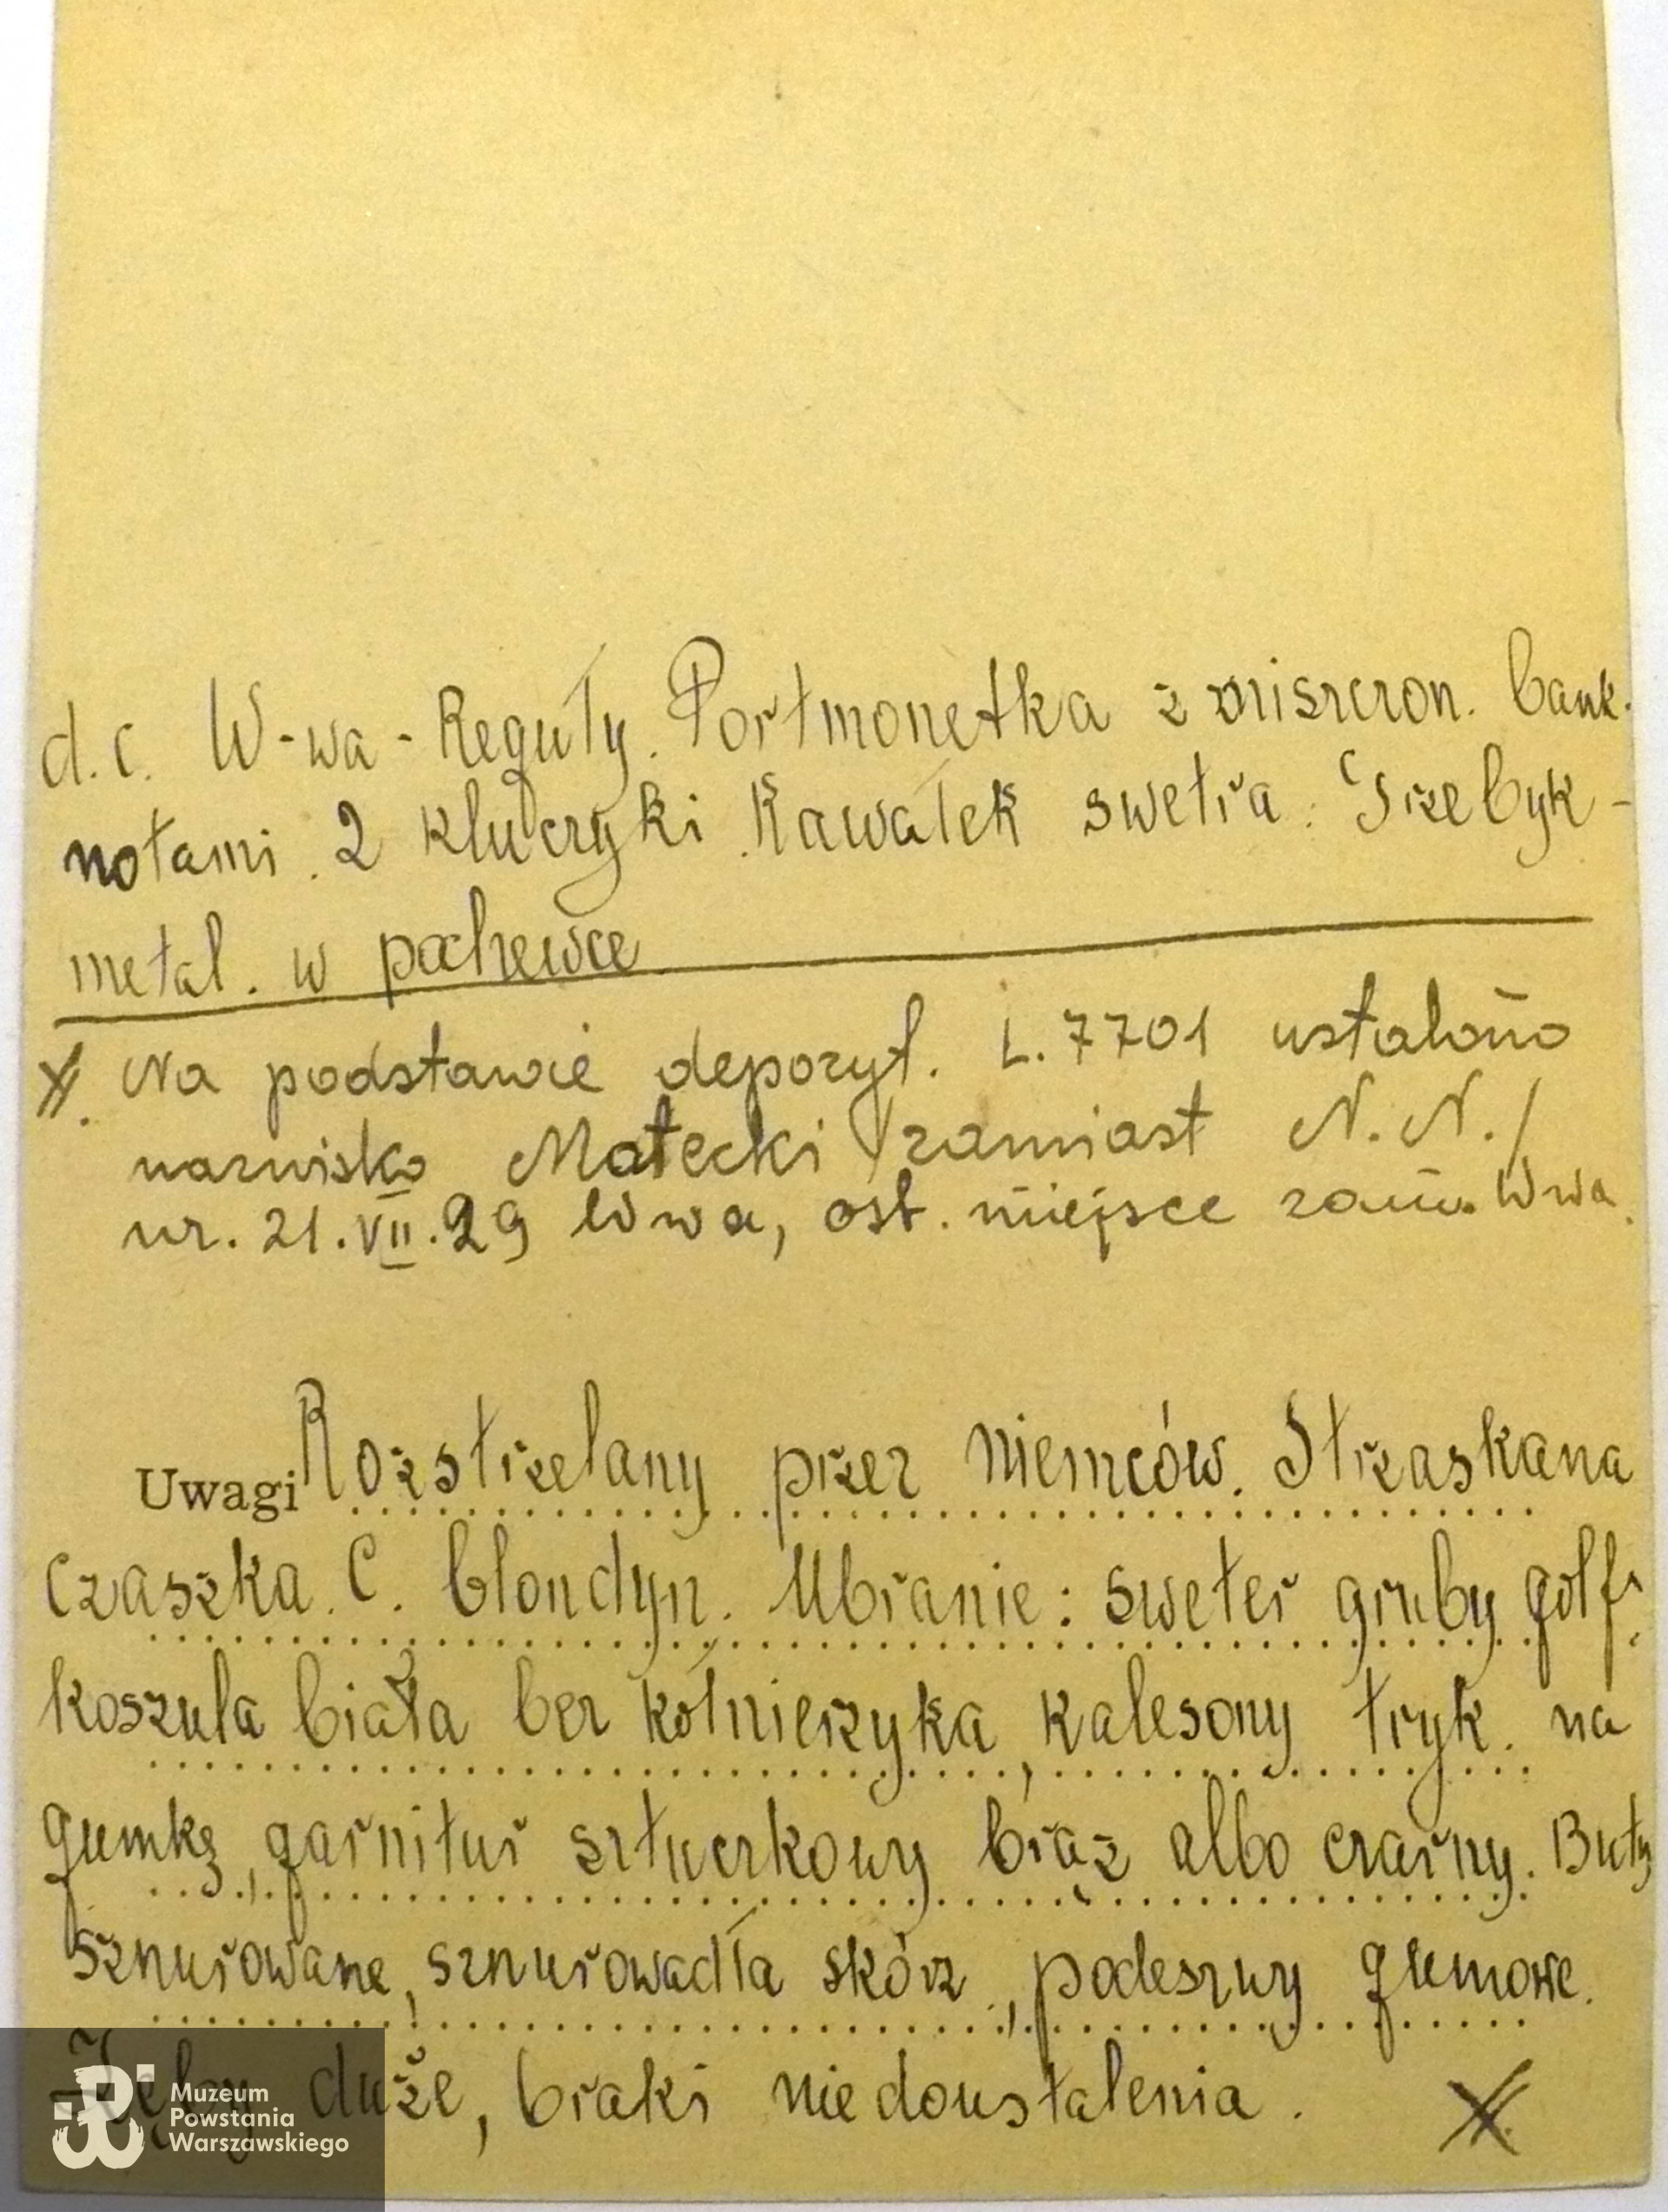 d.c. W-wa - Reguły. Portmonetka z zniszczon. bank-
notami. 2 kluczyki. Kawałek swetra. Grzebyk -
metal. w pochewce
X. Na podstawie depozyt. L. 7701 ustalono
nazwisko Małecki /zamiast N.N./
ur. 21.VII.29 Wwa, ost. miejsce zam. Wwa.
Uwagi Rozstrzelany przez niemców. Strzaskana
czaszka. C. blondyn. Ubranie: sweter gruby golf,
koszula biała bez kołnierzyka, kalesony tryk. na
gumkę, garnitur sztuczkowy brąz albo czarny. Buty
sznurowane, sznurowadła skórz., podeszwy gumowe.
Zęby duże, braki niedoustalenia. X
Muzeum
Powstania
Warszawskiego